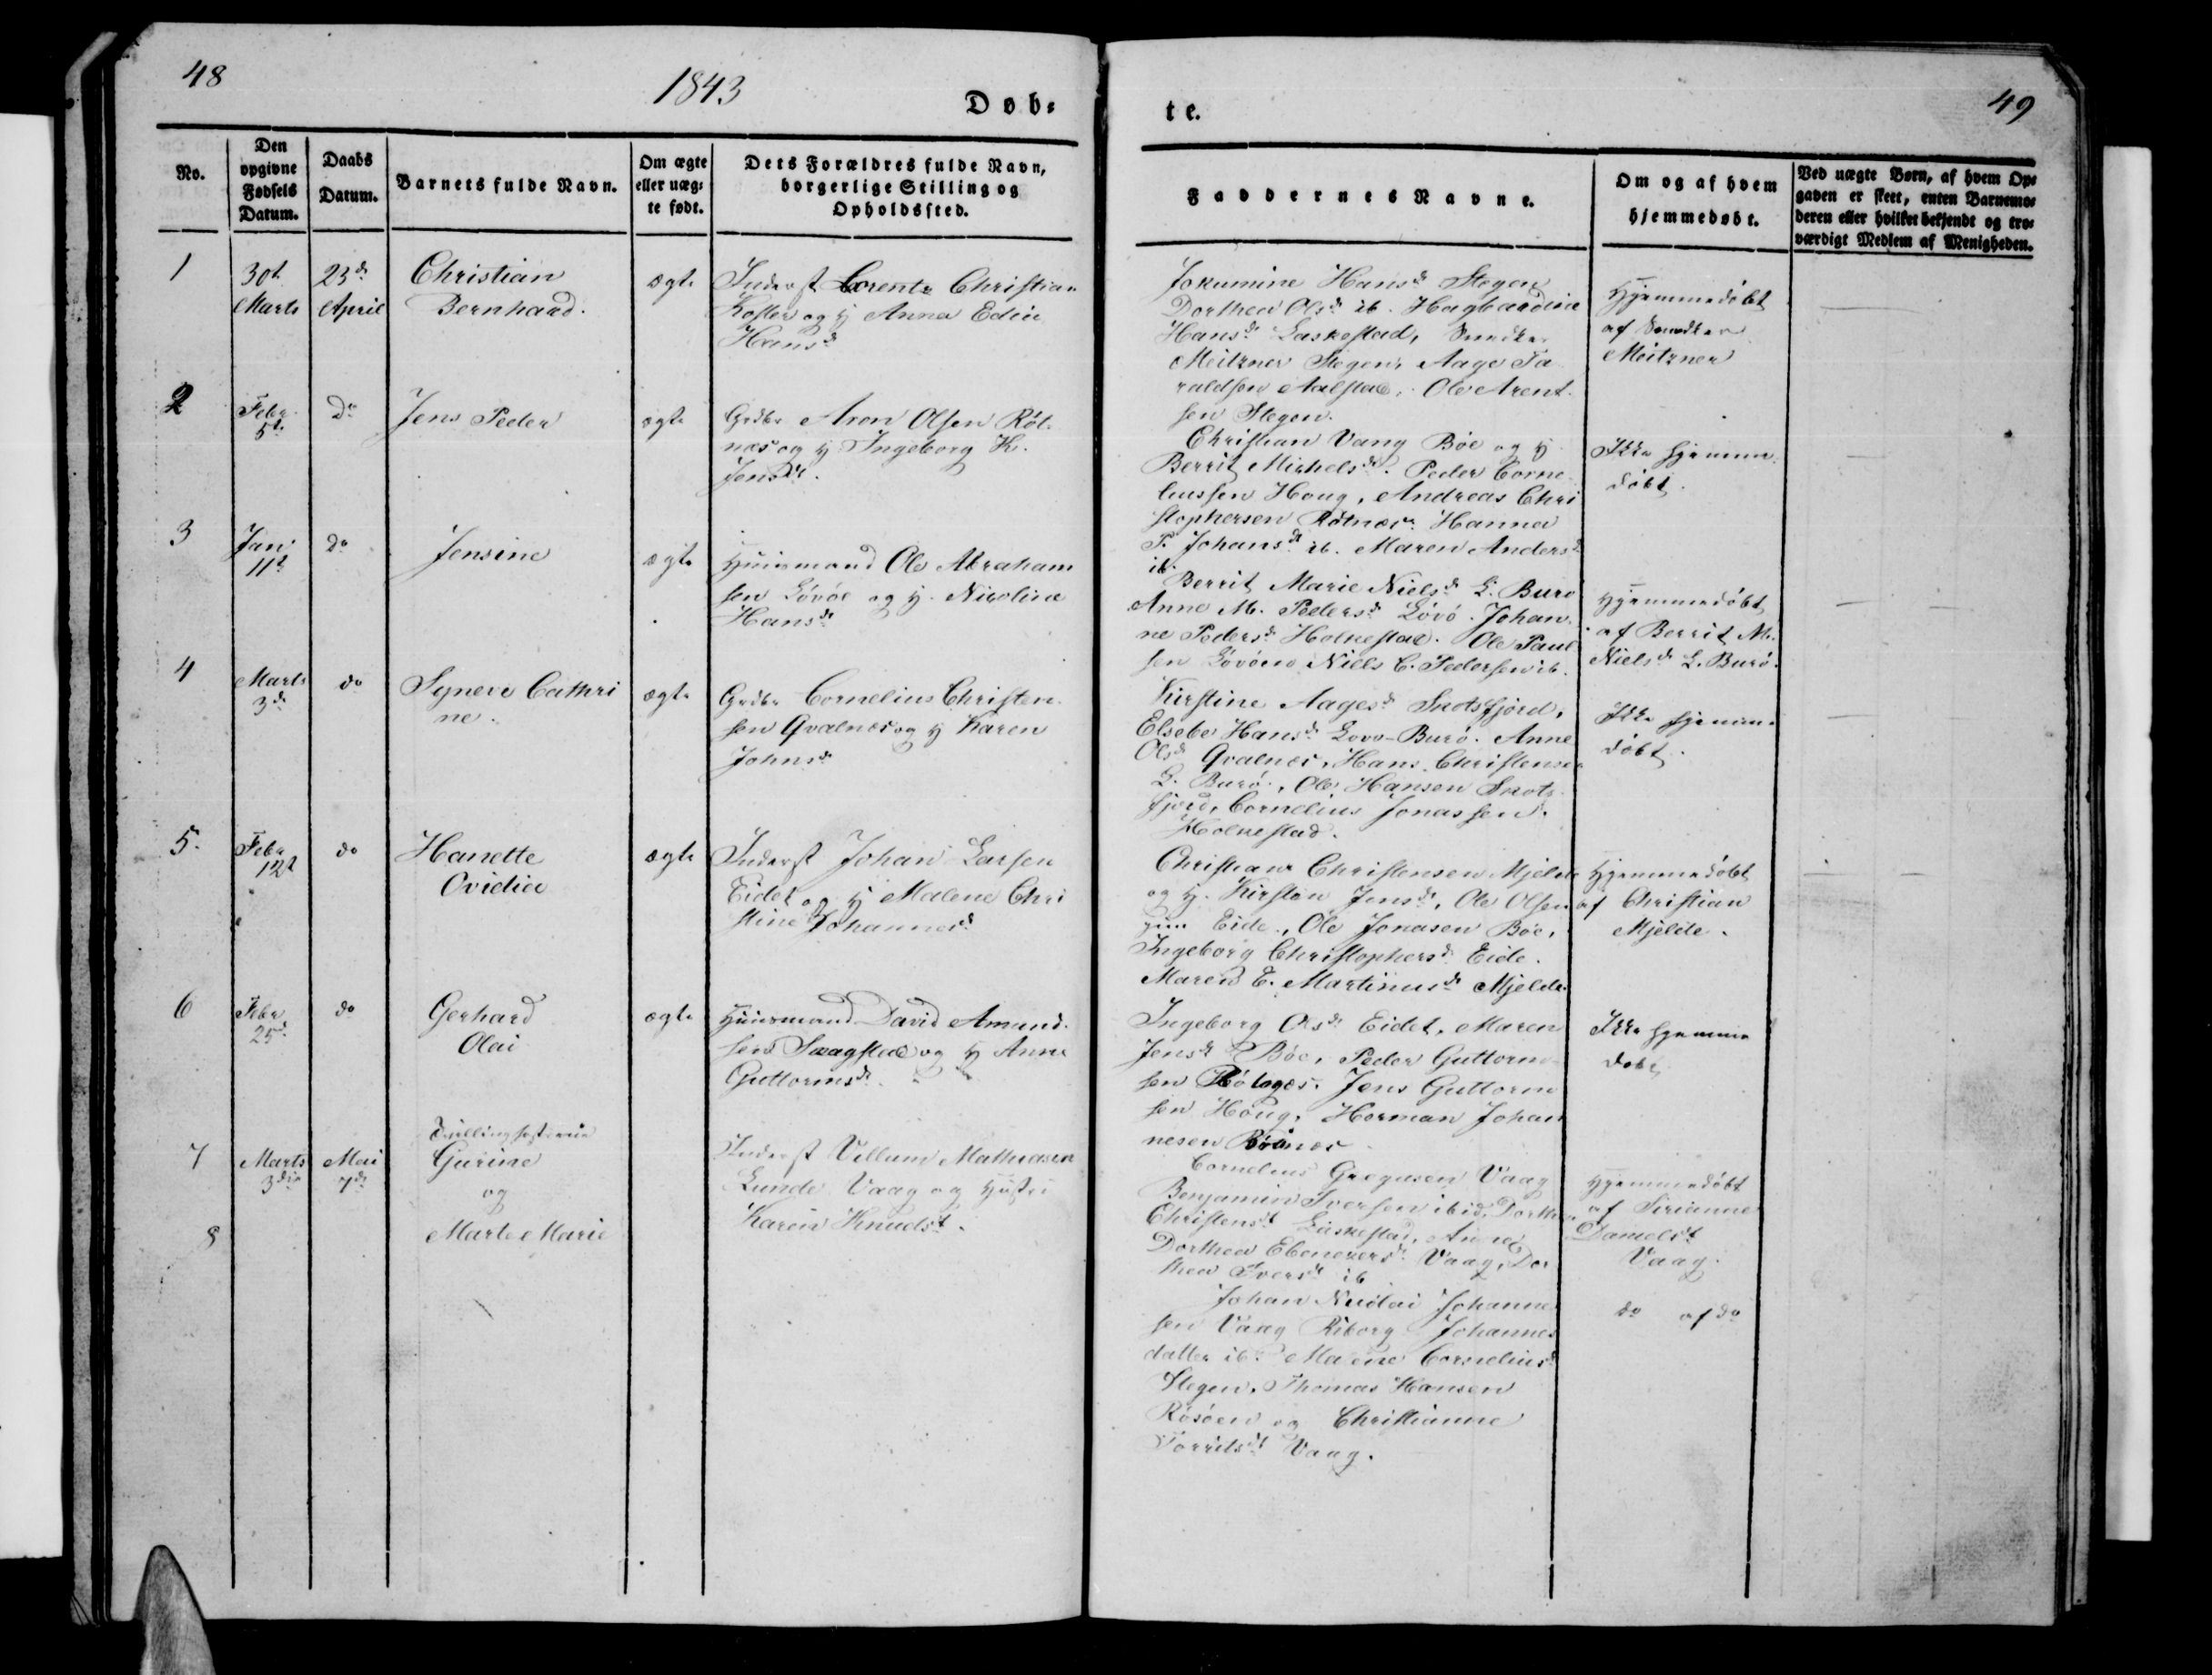 48
1843
Døb-
No.
Den
opgivne
Fødsels
Datum.
Daabs
Datum.
Barnets fulde Navn.
Om ægte
eller uæg-
te født.
Dets Forældres fulde Navn,
borgerlige Stilling og
Opholdssted.
1
30t
Marts
23d
April
Christian
Bernhard.
ægte
Inderst Lorents Christian
Koster og H Anna Edin
Hansd
2
Febr
5t
Do
Jens Peder
ægte
Grdbr Aron Olsen Røt-
næs og H Ingeborg K.
Jensdt.
3
Jan.
11t
do
Jensine
ægte
Huusmand Ole Abraham
sen Løvøe og H. Nicoline
Hansdt
4
Marts
3d
do
Synevi Cathri
ne.
ægte
Grdbr Cornelius Christen-
sen Qvalnæs og H Karen
Johnsd
5.
Febr
12t
do
Hanette
Ovidia
ægte
Inderst Johan Larsen
Eidet og H Malene Chri
stine Johannesd
6
Febr
25d
do
Gerhard
Olai
ægte
Huusmand David Amund-
sen Skagstad og H Anne
Guttormsd.
7
Marts
3die
Mai
7d
Tvillingsøstrene
Gurine
og
Inderst Villum Mathiasen
Lunde Vaag og Hustru
Karen Knudsdt.
8
Marte Marie
te.
49
Faddernes Navne.
Om og af hvem
hjemmedøbt.
Ved uægte Børn, af hvem Op-
gaven er skeet, enten Barnemo-
deren eller hvilket bekjendt og tro-
værdigt Medlem af Menigheden.
Jokumine Hansd Stegen
Dorthea Olsd ib. Hagbardine
Hansd Laskestad, Snedker
Meitzner Stegen, Aage Ta-
raldsen Aalstad, Ole Arent-
sen Stegen.
Hjemmedøbt
af Snedker
Meitzner
Christian Vang Bøe og H
Berrit Michelsdt. Peder Corne-
liussen Houg, Andreas Chri
stophersen Røtnæs Hanna
P. Johansdt ib. Maren Andersd
ib.
Ikke hjemme
døbt.
Berrit Marie Nielsd L. Burø
Anne M. Pedersd Løvø. Johan-
ne Pedersd Holkestad. Ole Paul
sen Løvøen Niels C. Pedersen ib.
Hjemmedøbt
af Berrit M.
Nielsd L. Burø.
Kirstine Aagesd Skotsfjord,
Elsebe Hansd Lovo-Burø. Anne
Olsd Qvalnæs, Hans Christensen
L. Burø, Ole Hansen Skots
fjord, Cornelius Jonassen
Holkestad.
Ikke hjemme
døbt.
Christian Christensen Mjelde
og H. Kirsten Jensd, Ole Olsen
jun Eide, Ole Jonasen Bøe,
Ingeborg Christophersd Eide.
Maren E. Martinusd Mjelde
Hjemmedøbt
af Christian
Mjelde.
Ingeborg Olsd Eidet, Maren
Jensdt Bøe, Peder Guttorm-
sen Røtnæs. Jens Guttorm
sen Houg, Herman Johan
nesen Røtnæs
Ikke hjemme
døbt
Cornelius Gregusen Vaag
Benjamin Iversen ibid, Dorthea
Christensdt Laskestad, Anne
Dorthea Ebenezersd Vaag, Dor
thea Iversdt ib
Hjemmedøbt
af Sirianne
Danielsdt
Vaag.
Johan Nicolai Johanne
sen Vaag Riborg Johannes
datter ib. Malene Corneliusd
Stegen, Thomas Hansen
Røsøen og Christianne
Torritsdt Vaag.
do af do